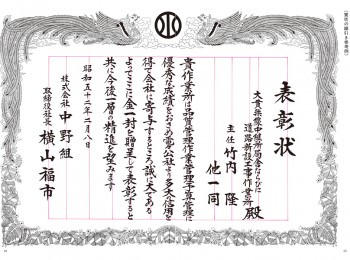 表彰状
大貫無線中継所局舎ならびに
道路新設工事作業所
主任 竹内 隆 殿
他一同
貴作業所は品質管理作業管理予算管理に
優秀な成績をおさめ電々公社より多大な信用を
得て会社に寄与するところ誠に大である
よってここに金一封を贈呈して表彰すると
共に今後一層の精進を望みます
昭和五十二年二月八日
株式会社 中野組
取締役社長 横山福市